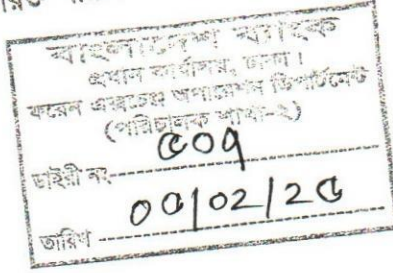 বাংলাদেশ ব্যাংক
প্রধান কার্যালয়, ঢাকা।
ফরেন এক্সচেঞ্জ অপারেশন ডিপার্টমেন্ট
(পরিচালক শাখা-২)
ডাইরী নং- ৫০৭
তারিখ ০৫/০২/২৫